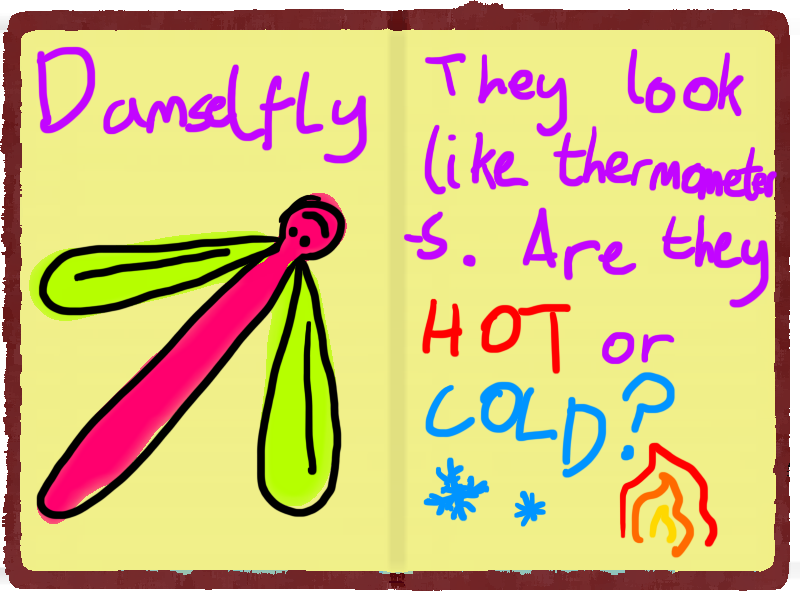 Damselfly
They look
like thermometer
-s. Are they
HOT or
COLD?